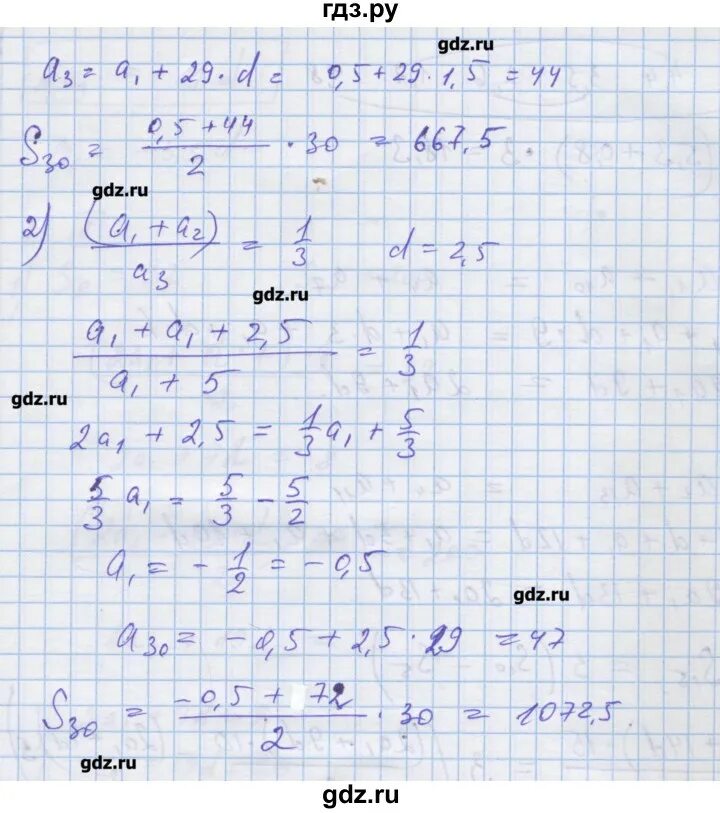 гдз.ру
gdz.ru
a₃ = a₁ + 29·d = 0,5 + 29·1,5 = 44
S₃₀ = (0,5 + 44)/2 · 30 = 667,5
gdz.ru
2) (a₁ + a₂)/a₃ = 1/3 d = 2,5
gdz.ru
(a₁ + a₁ + 2,5)/(a₁ + 5) = 1/3
gdz.ru
2a₁ + 2,5 = 1/3 a₁ + 5/3
5/3 a₁ = 5/3 − 5/2
a₁ = − 1/2 = −0,5
gdz.ru
a₃₀ = −0,5 + 2,5·29 = 47
S₃₀ = (−0,5 + 72)/2 · 30 = 1072,5
gdz.ru
gdz.ru